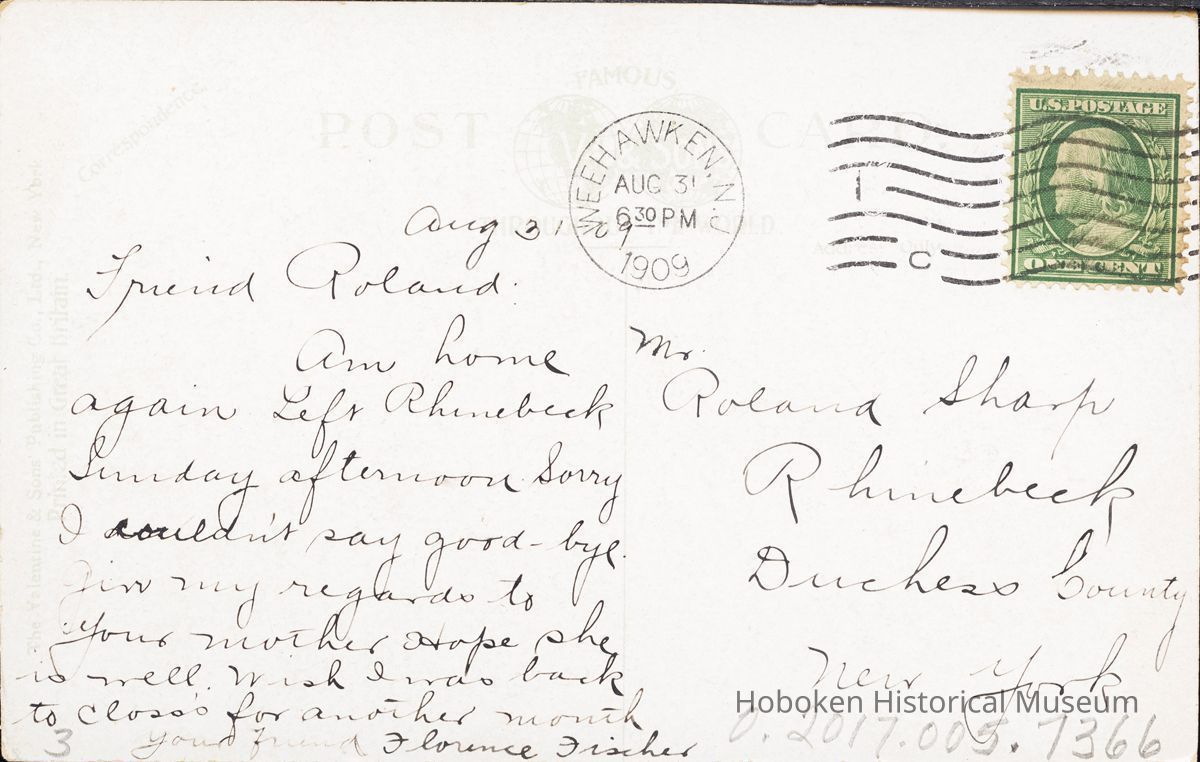 FAMOUS
POST CARD.
THROUGHOUT THE WORLD.
Correspondence.
The Valentine & Sons' Publishing Co., Ltd., New York.
Printed in Great Britain.
WEEHAWKEN, N.J.
AUG 31
6 30 PM
1909
1
C
U.S. POSTAGE
ONE CENT
Aug 31 09
Friend Roland.
Am home
again Left Rhinebeck
Sunday afternoon Sorry
I couldn't say good-bye.
Give my regards to
your mother Hope she
is well. Wish I was back
to Closs's for another month
Your friend Florence Fischer
Mr.
Roland Sharp
Rhinebeck
Duchess County
New York
Hoboken Historical Museum
0.2017.005.1366
3